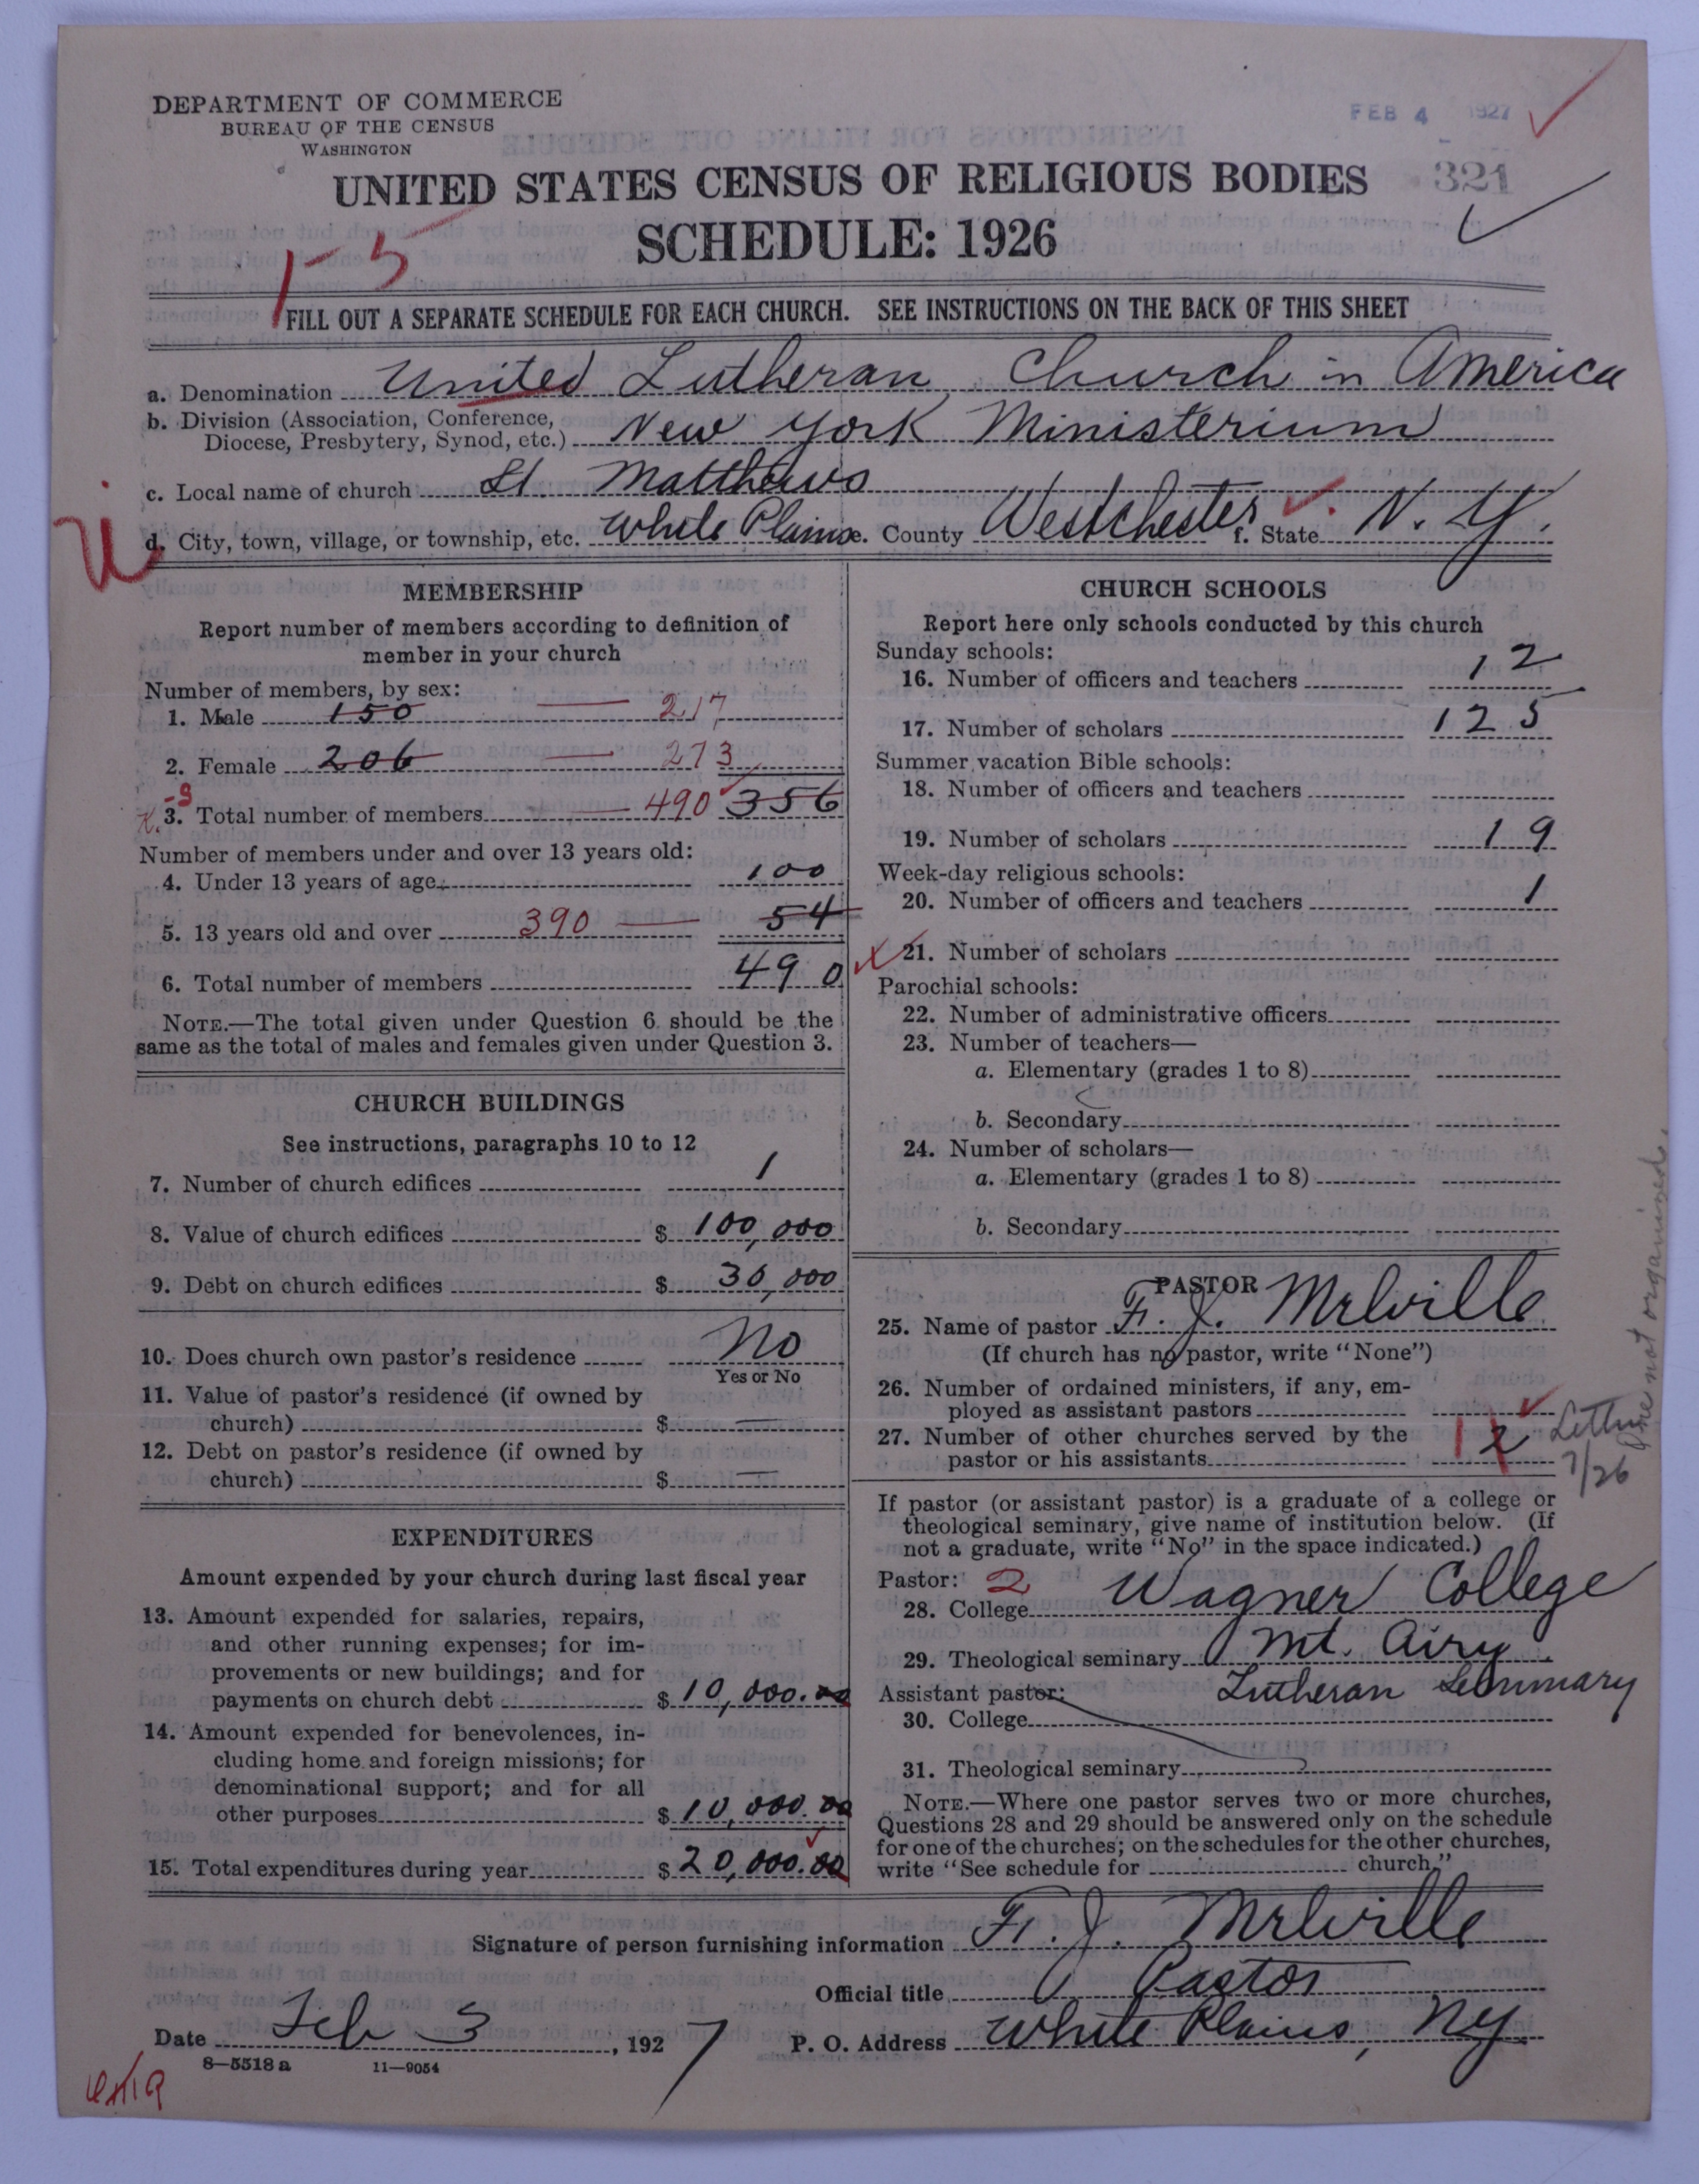 DEPARTMENT OF COMMERCE
BUREAU OF THE CENSUS
WASHINGTON
FEB 4 1927
321
UNITED STATES CENSUS OF RELIGIOUS BODIES
SCHEDULE: 1926
1-5
FILL OUT A SEPARATE SCHEDULE FOR EACH CHURCH. SEE INSTRUCTIONS ON THE BACK OF THIS SHEET
a. Denomination United Lutheran Church in America
b. Division (Association, Conference,
Diocese, Presbytery, Synod, etc.) New York Ministerium
c. Local name of church St. Matthews
U
d. City, town, village, or township, etc. White Plains e. County Westchester f. State N. Y.
MEMBERSHIP
Report number of members according to definition of
member in your church
Number of members, by sex:
1. Male 150 — 217
2. Female 206 — 273
3. Total number of members — 490 356
Number of members under and over 13 years old:
4. Under 13 years of age 100
5. 13 years old and over 390 — 54
6. Total number of members 490
NOTE.—The total given under Question 6 should be the
same as the total of males and females given under Question 3.
CHURCH BUILDINGS
See instructions, paragraphs 10 to 12
7. Number of church edifices 1
8. Value of church edifices $ 100,000
9. Debt on church edifices $ 30,000
10. Does church own pastor's residence No
Yes or No
11. Value of pastor's residence (if owned by
church) $ —
12. Debt on pastor's residence (if owned by
church) $ —
EXPENDITURES
Amount expended by your church during last fiscal year
13. Amount expended for salaries, repairs,
and other running expenses; for im-
provements or new buildings; and for
payments on church debt $ 10,000.00
14. Amount expended for benevolences, in-
cluding home and foreign missions; for
denominational support; and for all
other purposes $ 10,000.00
15. Total expenditures during year $ 20,000.00
CHURCH SCHOOLS
Report here only schools conducted by this church
Sunday schools:
16. Number of officers and teachers 12
17. Number of scholars 125
Summer vacation Bible schools:
18. Number of officers and teachers
19. Number of scholars 19
Week-day religious schools:
20. Number of officers and teachers 1
21. Number of scholars
Parochial schools:
22. Number of administrative officers
23. Number of teachers—
a. Elementary (grades 1 to 8)
b. Secondary
24. Number of scholars—
a. Elementary (grades 1 to 8)
b. Secondary
PASTOR
25. Name of pastor F. J. Melville
(If church has no pastor, write "None")
26. Number of ordained ministers, if any, em-
ployed as assistant pastors
27. Number of other churches served by the
pastor or his assistants 1 2
7/26
one not organized.
If pastor (or assistant pastor) is a graduate of a college or
theological seminary, give name of institution below. (If
not a graduate, write "No" in the space indicated.)
Pastor: 2
28. College Wagner College
29. Theological seminary Mt. Airy
Lutheran Seminary
Assistant pastor:
30. College
31. Theological seminary
NOTE.—Where one pastor serves two or more churches,
Questions 28 and 29 should be answered only on the schedule
for one of the churches; on the schedules for the other churches,
write "See schedule for church."
Signature of person furnishing information F. J. Melville
Official title Pastor
Date Feb 3, 1927 P. O. Address White Plains, N.Y.
8-5518 a 11-9054